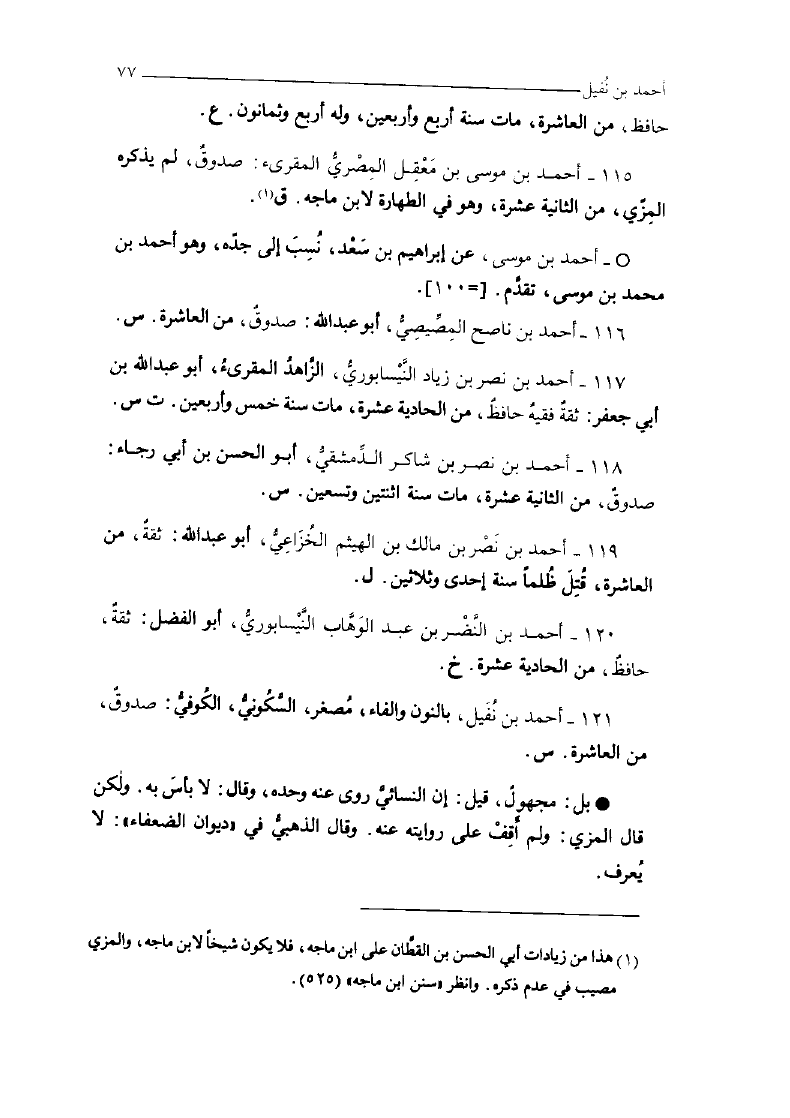 أحمد بن نُفَيل ٧٧
حافظ، من العاشرة، مات سنة أربع وأربعين، وله أربع وثمانون. ع.
١١٥ ـ أحمد بن موسى بن مَعْقِل المِصْريُّ المقرىء: صدوقٌ، لم يذكره
المِزّي، من الثانية عشرة، وهو في الطهارة لابن ماجه. ق(١).
O ـ أحمد بن موسى، عن إبراهيم بن سَعْد، نُسِبَ إلى جدّه، وهو أحمد بن
محمد بن موسى، تقدَّم. [=١٠٠].
١١٦ ـ أحمد بن ناصح المِصِّيصِيُّ، أبو عبدالله: صدوقٌ، من العاشرة. س.
١١٧ ـ أحمد بن نصر بن زياد النَّيسابوريُّ، الزَّاهدُ المقرىءُ، أبو عبدالله بن
أبي جعفر: ثقةٌ فقيهٌ حافظٌ، من الحادية عشرة، مات سنة خمس وأربعين. ت س.
١١٨ ـ أحمد بن نصر بن شاكر الدِّمشقيُّ، أبو الحسن بن أبي رجاء:
صدوقٌ، من الثانية عشرة، مات سنة اثنتين وتسعين. س.
١١٩ ـ أحمد بن نَصْر بن مالك بن الهيثم الخُزَاعِيُّ، أبو عبدالله: ثقةٌ، من
العاشرة، قُتِلَ ظُلماً سنة إحدى وثلاثين. ل.
١٢٠ ـ أحمد بن النَّضْر بن عبد الوَهَّاب النَّيسابوريُّ، أبو الفضل: ثقةٌ،
حافظٌ، من الحادية عشرة. خ.
١٢١ ـ أحمد بن نُفَيل، بالنون والفاء، مُصغر، السَّكُونيُّ، الكُوفيُّ: صدوقٌ،
من العاشرة. س.
● بل: مجهولٌ، قيل: إن النسائيَّ روى عنه وحده، وقال: لا بأسَ به. ولٰكن
قال المزي: ولم أَقِفْ على روايته عنه. وقال الذهبيُّ في «ديوان الضعفاء»: لا
يُعرف.
(١) هذا من زيادات أبي الحسن بن القطَّان على ابن ماجه، فلا يكون شيخاً لابن ماجه، والمزي
مصيب في عدم ذكره. وانظر «سنن ابن ماجه» (٥٢٥).